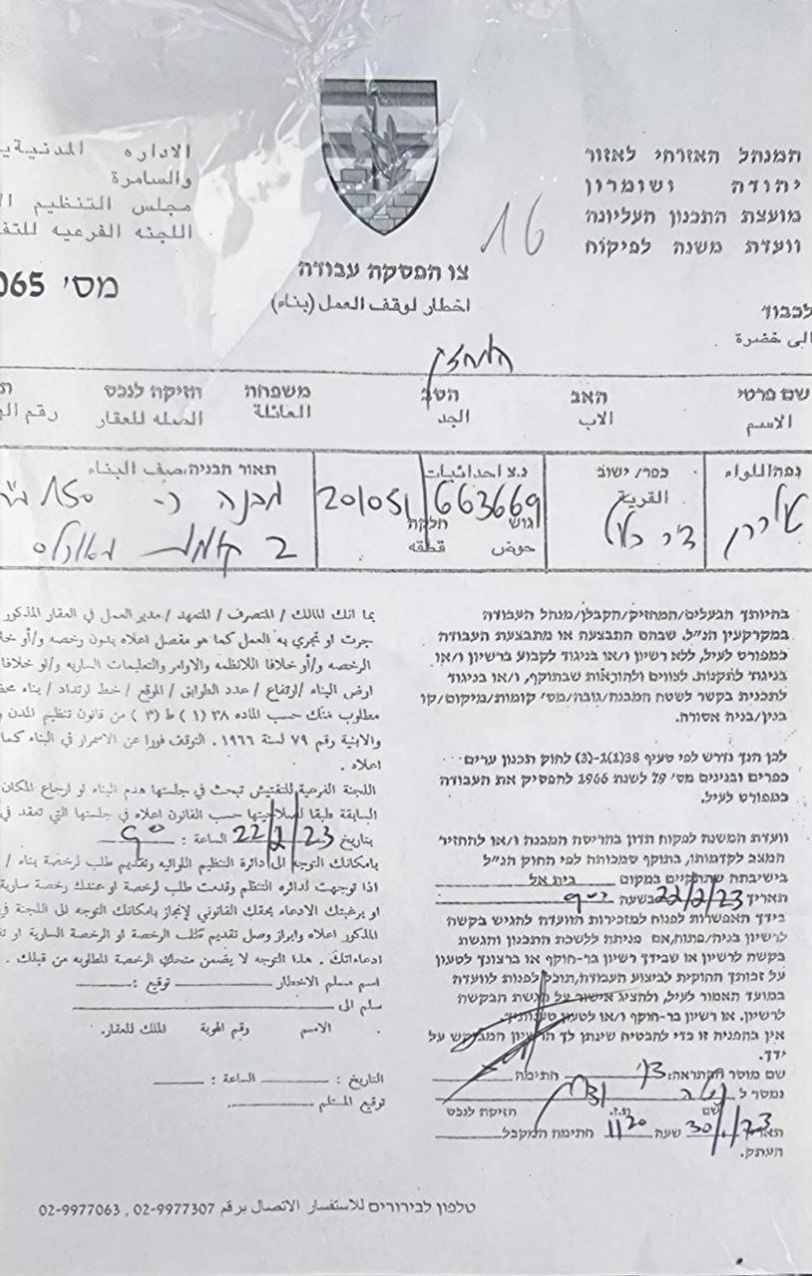 המנהל האזרחי לאזור
יהודה ושומרון
מועצת התכנון העליונה
וועדת משנה לפיקוח
الاداره المدنية
والسامرة
مجلس التنظيم
اللجنه الفرعيه
16
צו הפסקת עבודה
اخطار لوقف العمل (بناء)
מס' 065
לכבוד
الى حضرة
המחזיק
שם פרטי האב הסב משפחה חזיקה לנכס
الاسم الاب الجد العائلة الصله للعقار
נפה/اللواء כפר/ישוב נ.צ احداثيات תאור הבניה/وصف البناء
القرية
663669 201051
גוש חלקה
حوض قطعه
מבנה כ- 150 מ"ר
ב קומת
בהיותך הבעלים/המחזיק/הקבלן/מנהל העבודה
במקרקעין הנ"ל. שבהם התבצעה או מתבצעת העבודה
כמפורט לעיל, ללא רשיון ו/או בניגוד לקבוע ברשיון ו/או
בניגוד לתקנות. לצווים ולהוראות שבתוקף, ו/או בניגוד
לתכנית בקשר לשטח המבנה/גובה/מס' קומות/מיקום/קו
בנין/בניה אסורה.
לכן הנך נדרש לפי סעיף 38(1)-(3) לחוק תכנון ערים
כפרים ובנינים מס' 79 לשנת 1966 להפסיק את העבודה
כמפורט לעיל.
וועדת המשנה לפקוח תדון בהריסת המבנה ו/או להחזיר
המצב לקדמותו, בתוקף סמכותה לפי החוק הנ"ל
בישיבתה שתתקיים במקום בית אל
תאריך 22/2/23 בשעה
בידך האפשרות לפנות למזכירות הוועדה להגיש בקשה
לרשיון בניה/פתוח, אם פניתה ללשכת התכנון והגשת
בקשה לרשיון או שבידך רשיון בר-תוקף או ברצונך לטעון
על זכותך החוקית לביצוע העבודה, תוכל לפנות לוועדה
במועד האמור לעיל, ולהציג אישור על הגשת הבקשה
לרשיון. או רשיון בר-תוקף ו/או לטעון טענותיך.
אין בהפניה זו כדי להבטיח שינתן לך הרשיון המבוקש על
ידך.
שם מוסר ההתראה: חתימה
נמסר ל
שם ת.ז. חזיקה לנכס
תאריך 30/1/23 שעה 1120 חתימת המקבל
העתק.
بما انك المالك / المتصرف / المتعهد / مدير العمل في العقار المذكور
جرت او تجري به العمل كما هو مفصل اعلاه بدون رخصه و/أو
الرخصه و/أو خلافا للانظمه والاوامر والتعليمات الساريه و/او خلافا
ارض البناء /ارتفاع / عدد الطوابق / الموقع / خط ارتداد / بناء
مطلوب منك حسب الماده ٣٨ (١) ط (٣) من قانون تنظيم المدن
والابنية رقم ٧٩ لسنة ١٩٦٦ . التوقف فورا عن الاستمرار في البناء كما
اعلاه .
اللجنة الفرعية للتفتيش تبحث في جلستها هدم البناء او ارجاع المكان
السابقة طبقا لصلاحيتها حسب القانون اعلاه في جلستها التي تعقد في
بتاريخ 22/2/23 الساعة :
بامكانك التوجه الى دائرة التنظيم اللوائيه وتقديم طلب لرخصة بناء /
اذا توجهت لدائره التنظم وقدمت طلب لرخصة او عندك رخصة سارية
او برغبتك الادعاء بحقك القانوني لإنجاز بامكانك التوجه الى اللجنة
المذكور اعلاه وابراز وصل تقديم طلب الرخصة او الرخصة السارية او
ادعاءاتك . هذا التوجه لا يضمن منحك الرخصة المطلوبه من قبلك .
اسم مسلم الاخطار توقيع :
سلم الى
الاسم وقم الهوية الملك للعقار.
التاريخ : الساعة :
توقيع المستلم
טלפון לבירורים للاستفسار الاتصال برقم 02-9977307 , 02-9977063